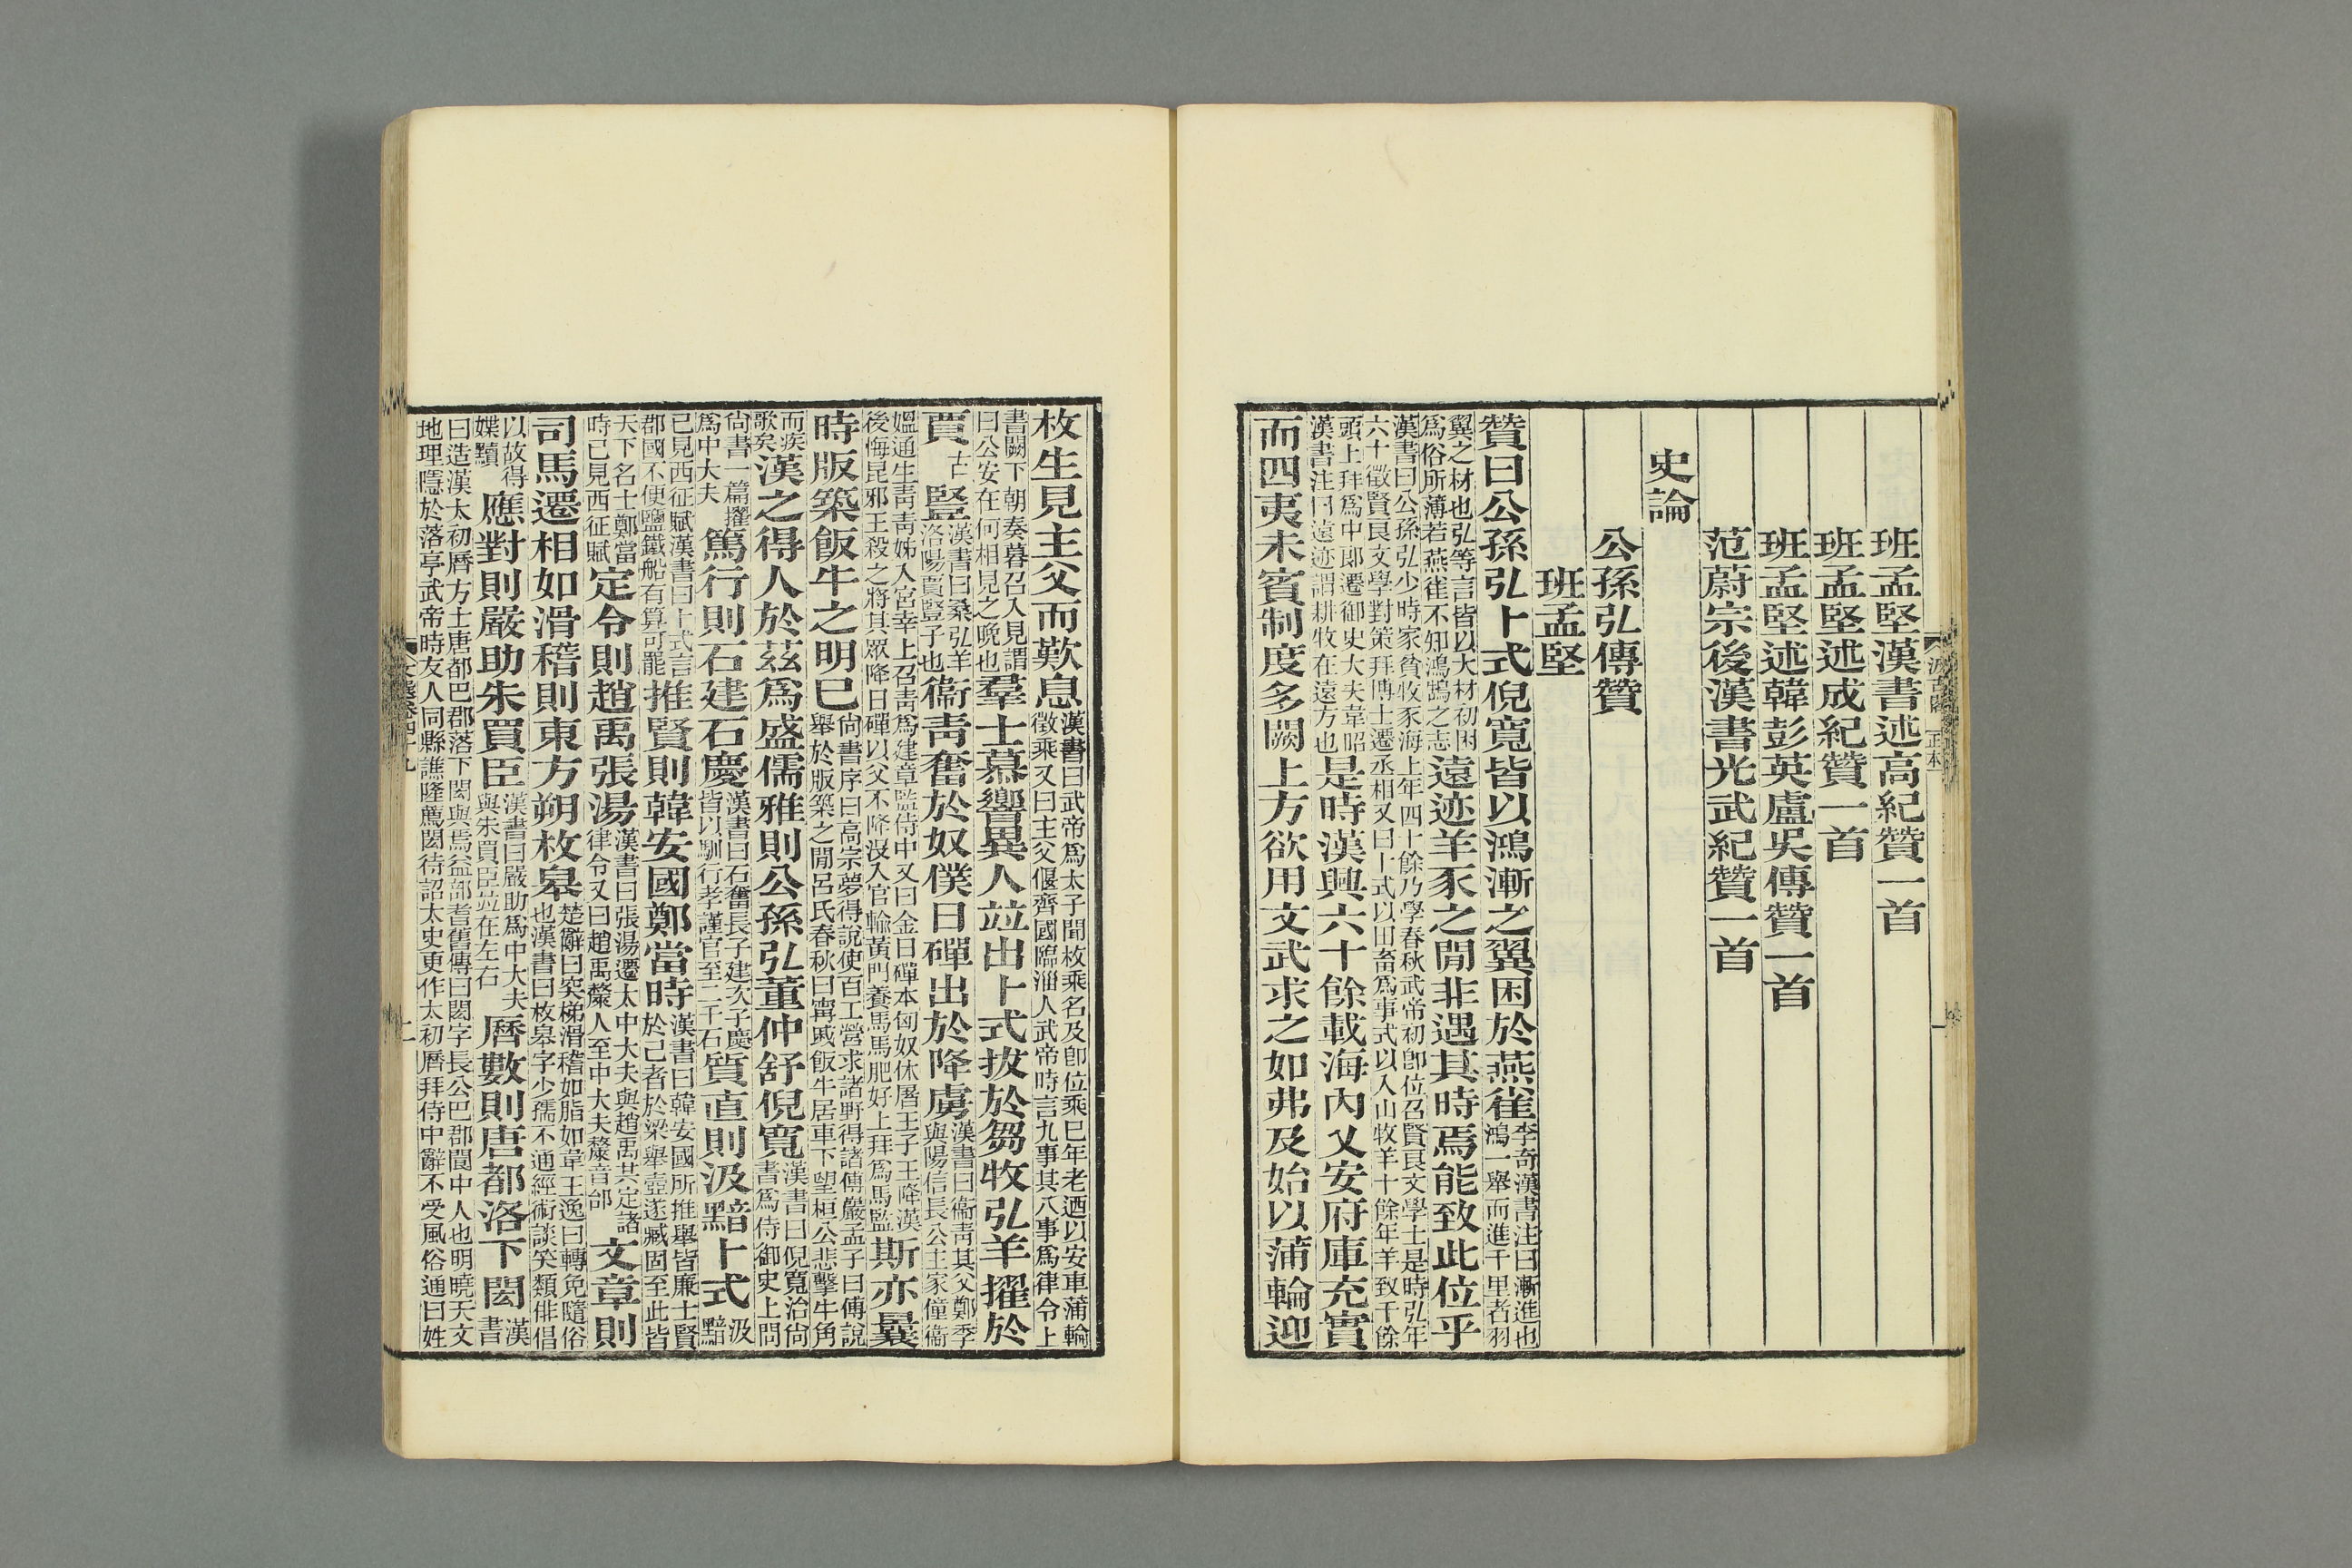 汲古閣 正本
班孟堅漢書述高紀贊一首
班孟堅述成紀贊一首
班孟堅述韓彭英盧吳傳贊一首
范蔚宗後漢書光武紀贊一首
史論
公孫弘傳贊
班孟堅
贊曰公孫弘卜式倪寬皆以鴻漸之翼困於燕雀李奇漢書注曰漸進也鴻一舉而進千里者羽
翼之材也弘等言皆以大材初困爲俗所薄若燕雀不知鴻鵠之志遠迹羊豕之閒非遇其時焉能致此位乎
漢書曰公孫弘少時家貧牧豕海上年四十餘乃學春秋武帝初卽位召賢良文學士是時弘年六十徵賢良文學對策拜博士遷丞相又曰卜式以田畜爲事式以入山牧羊十餘年羊致千餘
頭上拜爲中郎遷御史大夫韋昭漢書注曰遠迹謂耕牧在遠方也是時漢興六十餘載海內乂安府庫充實
而四夷未賓制度多闕上方欲用文武求之如弗及始以蒲輪迎
枚生見主父而歎息漢書曰武帝爲太子聞枚乘名及卽位乘已年老迺以安車蒲輪徵乘又曰主父偃齊國臨淄人武帝時言九事其八事爲律令上
書闕下朝奏暮召入見謂曰公安在何相見之晚也羣士慕嚮異人竝出卜式拔於芻牧弘羊擢於
賈古豎漢書曰桑弘羊洛陽賈豎子也衞青奮於奴僕日磾出於降虜漢書曰衞青其父鄭季與陽信長公主家僮衞
媼通生青青姊入宮幸上召青爲建章監侍中又曰金日磾本匈奴休屠王子王降漢後悔昆邪王殺之將其眾降日磾以父不降沒入官輸黃門養馬馬肥好上拜爲馬監斯亦曩
時版築飯牛之明已尚書序曰高宗夢得說使百工營求諸野得諸傅巖孟子曰傅說舉於版築之閒呂氏春秋曰甯戚飯牛居車下望桓公悲擊牛角
而疾歌矣漢之得人於茲爲盛儒雅則公孫弘董仲舒倪寬漢書曰倪寬治尚書爲侍御史上問
尚書一篇擢爲中大夫篤行則石建石慶漢書曰石奮長子建次子慶皆以馴行孝謹官至二千石質直則汲黯卜式汲黯
已見西征賦漢書曰卜式言郡國不便鹽鐵船有算可罷推賢則韓安國鄭當時漢書曰韓安國所推舉皆廉士賢於己者於梁舉壺遂臧固至此皆
天下名士鄭當時已見西征賦定令則趙禹張湯漢書曰張湯遷太中大夫與趙禹共定諸律令又曰趙禹斄人至中大夫斄音邰文章則
司馬遷相如滑稽則東方朔枚皋楚辭曰突梯滑稽如脂如韋王逸曰轉免隨俗也漢書曰枚皋字少孺不通經術談笑類俳倡
以故得媟黷應對則嚴助朱買臣漢書曰嚴助爲中大夫與朱買臣竝在左右曆數則唐都洛下閎漢書
曰造漢太初曆方士唐都巴郡落下閎與焉益部耆舊傳曰閎字長公巴郡閬中人也明曉天文地理隱於落亭武帝時友人同縣譙隆薦閎待詔太史更作太初曆拜侍中辭不受風俗通曰姓
文選卷四十九 二